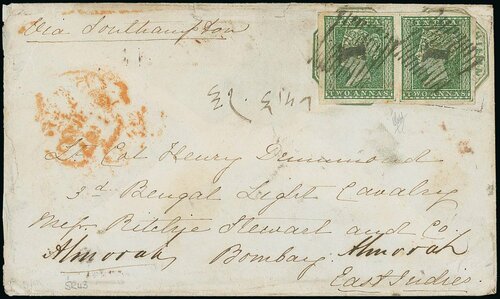 Via Southampton
INDIA
INDIA
TWO ANNAS
TWO ANNAS
Lt. Col Henry Drummond
3rd Bengal Light Cavalry
Messrs Ritchie Stewart and Co.
Almorah Bombay Almorah
East Indies